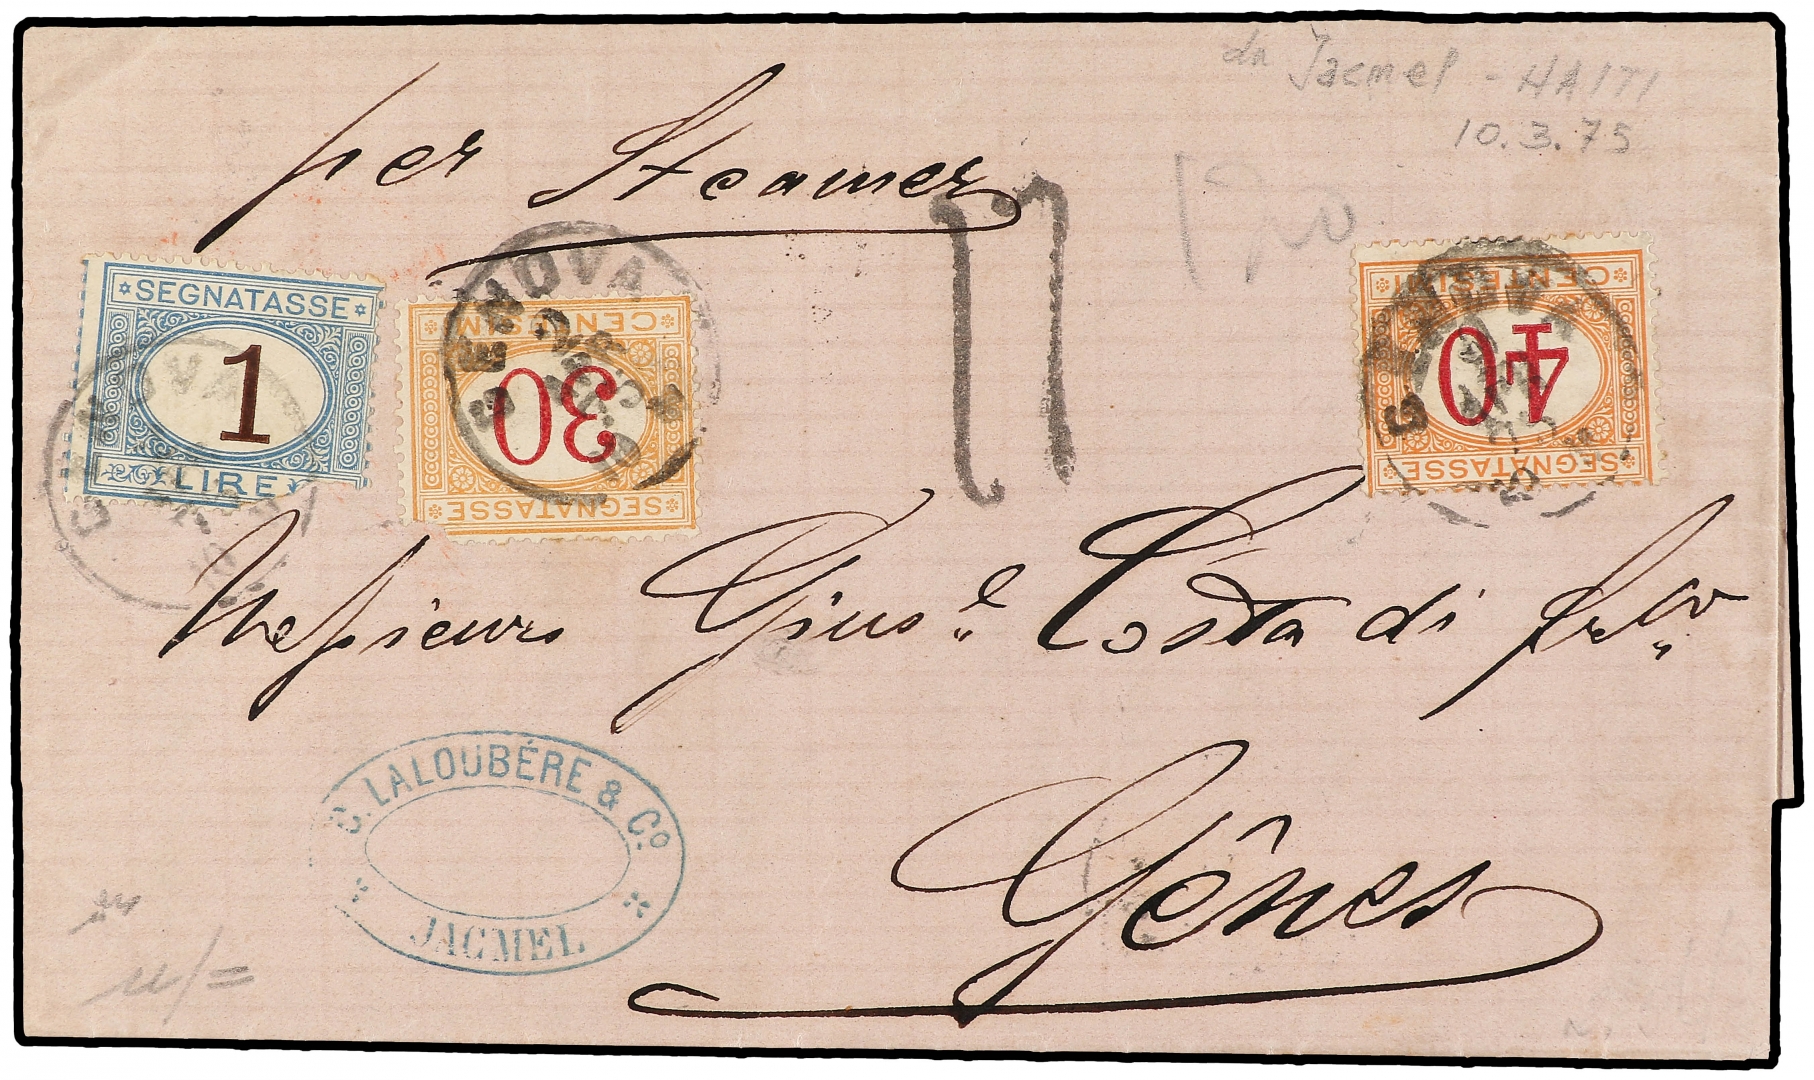 da Jacmel - HAITI
10.3.75
per Steamer
SEGNATASSE
1
LIRE
GENOVA
CENTESIMI
30
SEGNATASSE
GENOVA
CENTESIMI
40
SEGNATASSE
GENOVA
Messieurs Gius.e Costa di fr.co
Gênes
C. LALOUBÉRE & Cº.
JACMEL